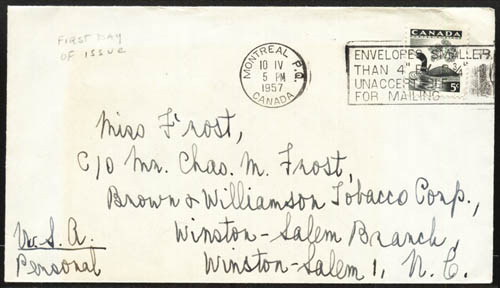 FIRST DAY
OF ISSUE
MONTREAL P.Q.
10 IV
5 PM
1957
CANADA
CANADA
5¢
ENVELOPES SMALLER
THAN 4"
FOR MAILING
Miss Frost,
C/O Mr. Chas. M. Frost,
Brown & Williamson Tobacco Corp.,
Winston-Salem Branch,
Winston-Salem 1, N.C.
U.S.A.
Personal